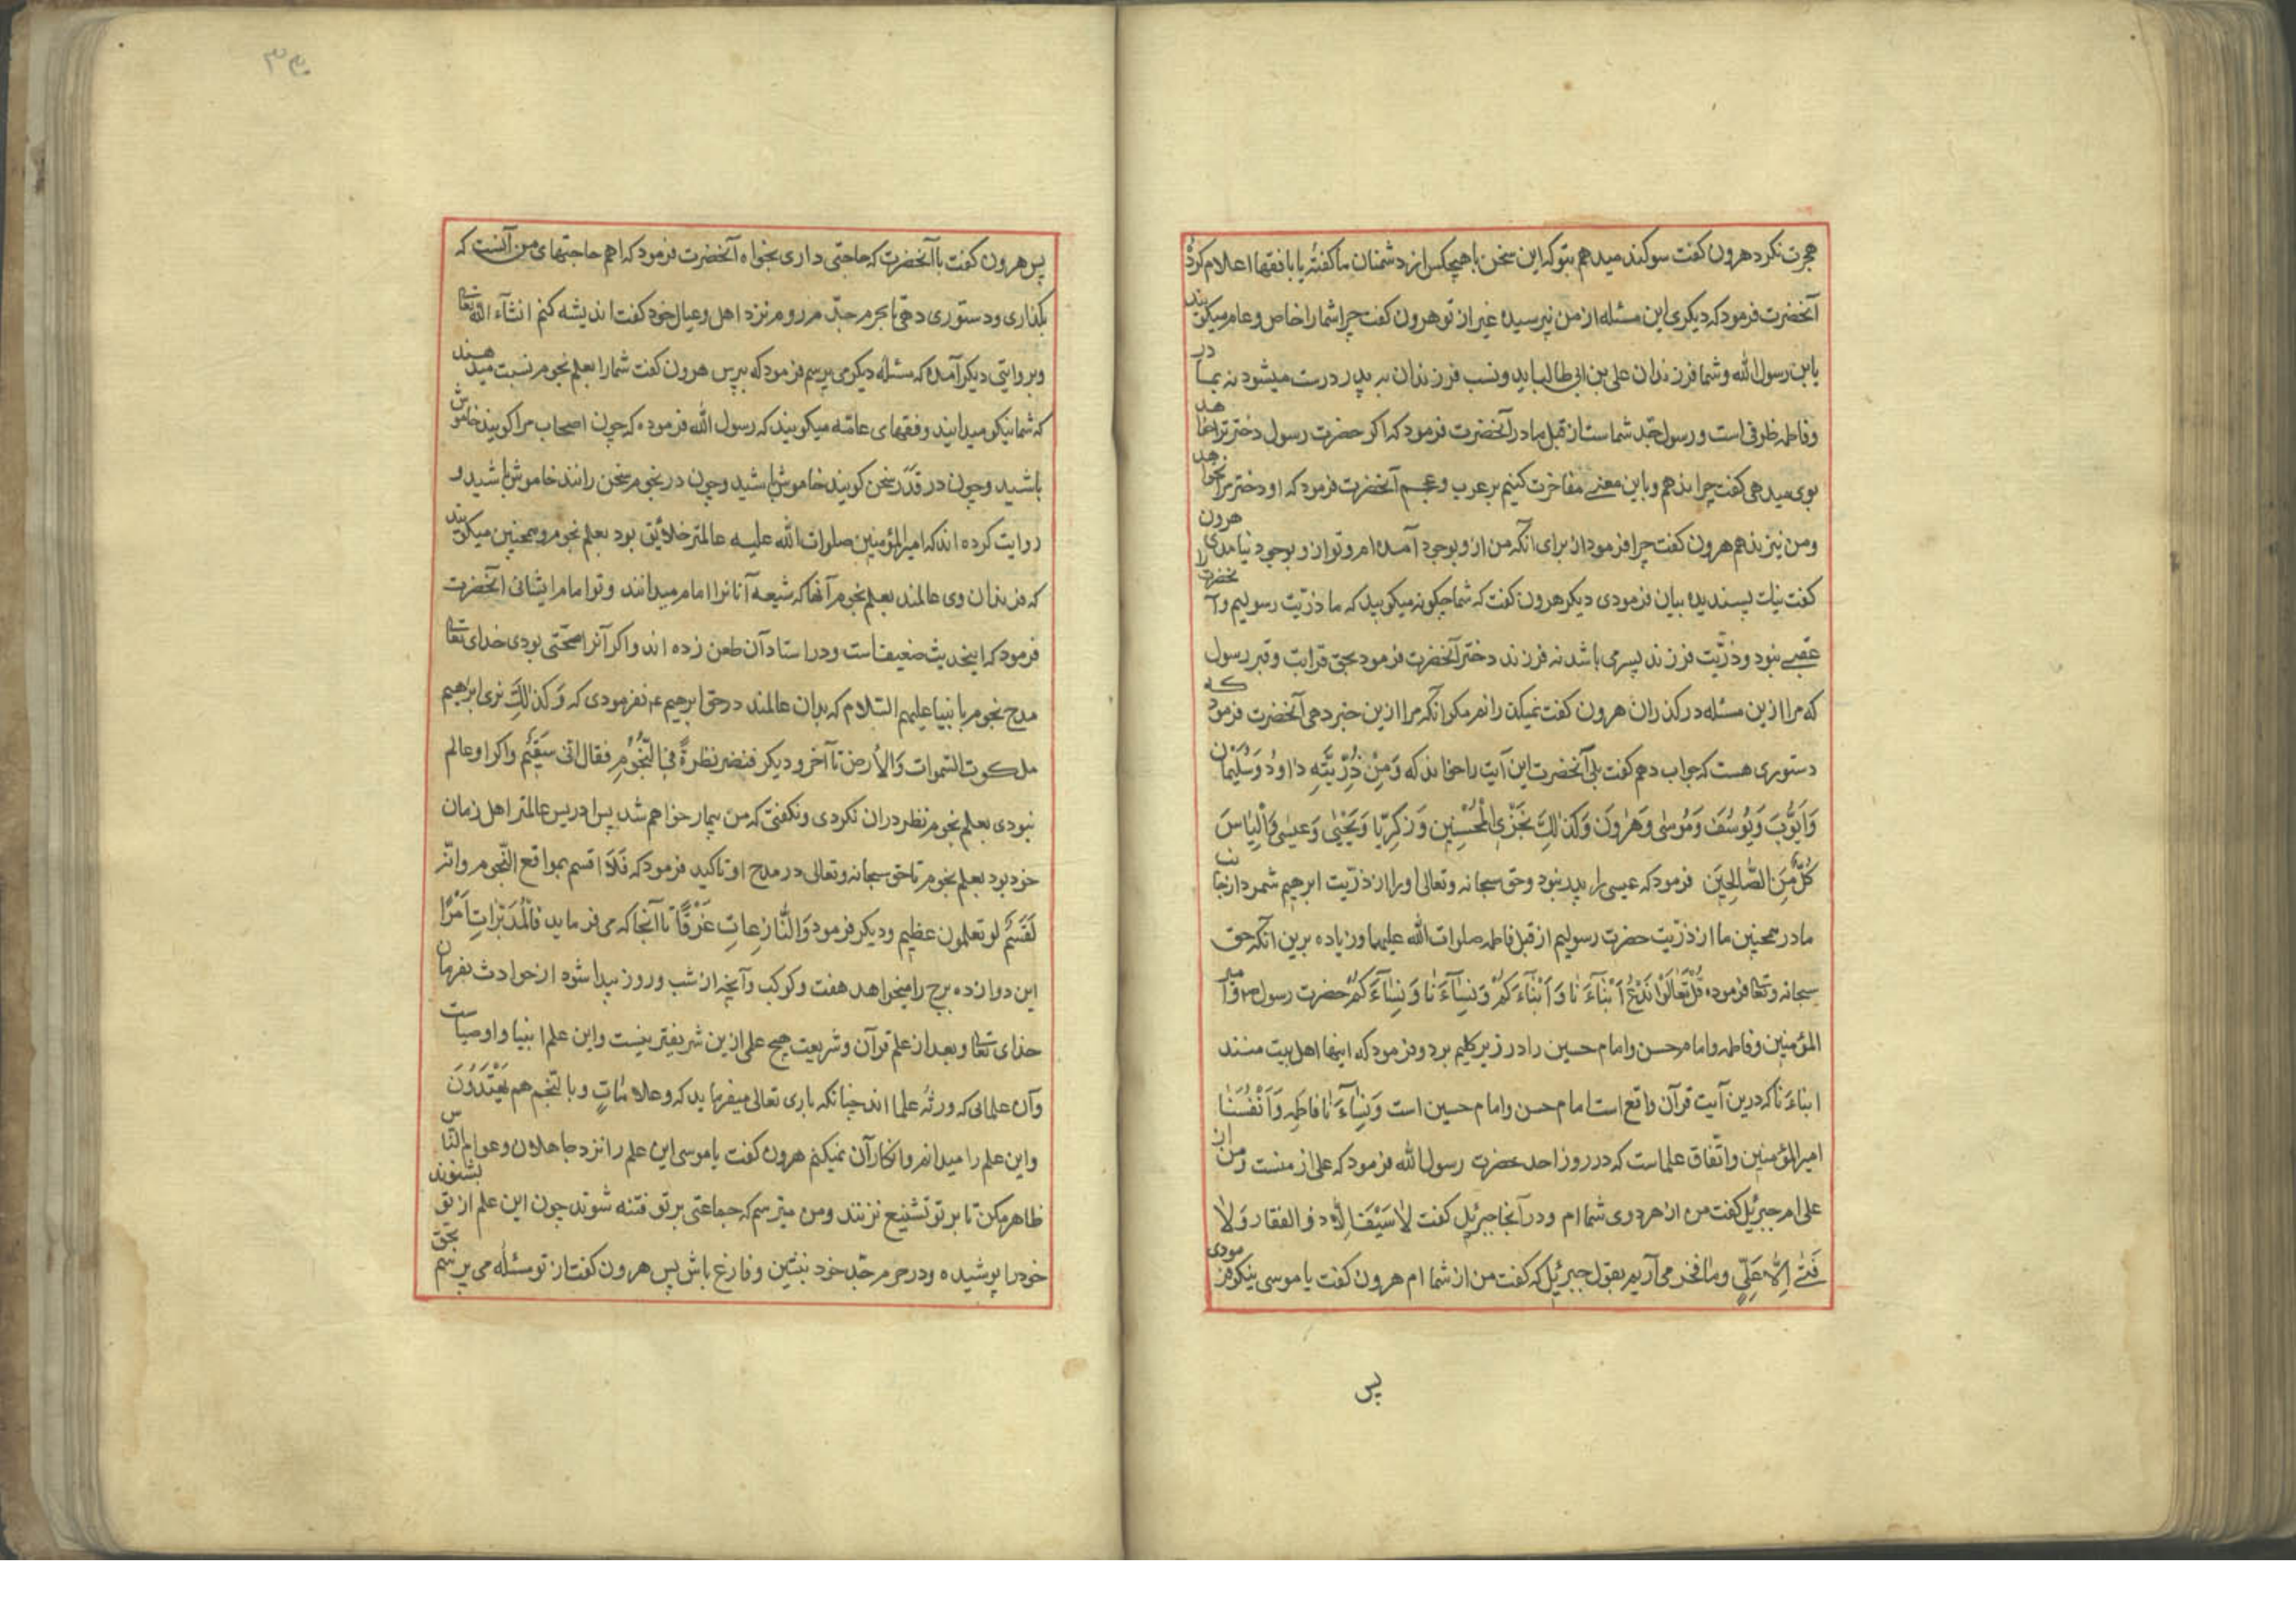 هجرت نکرد هرون کفت سوکند میدهم بتو که این سخن با هیچکس از دشمنان ما کفتهٔ یا بافقها اعلام کردهٔ
آنحضرت فرمود که دیکری این مسئله از من نپرسیده غیر از تو هرون کفت چرا شما را خاص و عام میکویند
یابن رسول الله و شما فرزندان علی بن ابی طالب اید و نسب فرزندان به پدر درست میشود نه بمادر
وفاطمه ظرفی است و رسول جد شماست از قبل مادر آنحضرت فرمود که اکر حضرت رسول دختر ترا خواهد
بوی میدهی کفت چرا ندهم و باین معنی مفاخرت کنیم بر عرب و عجم آنحضرت فرمود که او دختر مرا نخواهد
ومن نیز ندهم هرون کفت چرا فرمود از برای آنکه من ازو بوجود آمده ام و تو ازو بوجود نیامدی هرون
کفت نیک پسندیده بیان فرمودی دیکر هرون کفت که شما چکونه میکویید که ما ذرّیت رسولیم و آنحضرت را
عقبی نبود و ذرّیت فرزند پسر می باشد نه فرزند دختر آنحضرت فرمود بحق قرابت و قبر رسول
که مرا ازین مسئله در کذران هرون کفت نمیکذرانم مکر آنکه مرا ازین خبر دهی آنحضرت فرمود که
دستوری هست که جواب دهم کفت بلی آنحضرت این آیت را خواند که وَمِنْ ذُرِّیَّتِهِ دٰاوُدَ وَسُلَیْمٰان
وَاَیُّوبَ وَیُوسُفَ وَمُوسٰی وَهٰرُونَ وَکَذٰلِکَ نَجْزِی الْمُحْسِنِینَ وَزَکَرِیّٰا وَیَحْیٰی وَعِیسٰی وَاِلْیٰاسَ
کُلٌّ مِنَ الصّٰالِحِینَ فرمود که عیسی را پدر نبود و حق سبحانه وتعالی او را از ذرّیت ابرهیم شمرد از جانب
مادر همچنین ما از ذرّیت حضرت رسولیم از قبل فاطمه صلوات الله علیهما و زیاده برین آنکه حق
سبحانه وتعا فرموده قُلْ تَعٰالَوْا نَدْعُ اَبْنٰآءَنٰا وَاَبْنٰآءَکُمْ وَنِسٰآءَنٰا وَنِسٰآءَکُمْ حضرت رسول ص و امیر
المؤمنین وفاطمه و امام حسن و امام حسین را در زیر کلیم برد و فرمود که اینها اهل بیت منند
ابناءَنا که درین آیت قرآن واقع است امام حسن و امام حسین است وَنِسٰآءَنٰا فاطمه وَاَنْفُسَنٰا
امیرالمؤمنین و اتّفاق علماست که در روز احد حضرت رسول الله فرمود که علی از منست و من از
علی ام جبرئیل کفت من از هر دوی شما ام و در آنجا جبرئیل کفت لا سَیْفَ اِلّا ذو الفقار وَلا
فَتٰی اِلّا عَلِیّ و ما فخر می آریم بقول جبرئیل که کفت من از شما ام هرون کفت یا موسی نیکو فرمودی
پس
۳۴
پس هرون کفت با آنحضرت که حاجتی داری بخواه آنحضرت فرمود که اهم حاجتهای من آنست که
بکذاری و دستوری دهی تا بحرم جدّ م روم نزد اهل و عیال خود کفت اندیشه کنم انشآء الله تعا
وبروایتی دیکر آمده که مسئلهٔ دیکر می پرسم فرمود که بپرس هرون کفت شما را بعلم نجوم نسبت میدهند
که شما نیکو میدانید و فقهای عامّه میکویند که رسول الله فرموده که چون اصحاب مرا کویند خاموش
باشید و چون در قَدَر سخن کویند خاموش باشید و چون در نجوم سخن رانند خاموش باشید و
روایت کرده اند که امیرالمؤمنین صلوات الله علیه عالمتر خلائق بود بعلم نجوم و همچنین میکویند
که فرزندان وی عالمند بعلم نجوم آنها که شیعه آنانرا امام میدانند و تو امام ایشانی آنحضرت
فرمود که اینحدیث ضعیف است و در اسناد آن طعن زده اند و اکر آنرا صحّتی بودی خدای تعا
مدح نجوم با نبیا علیهم السّلام که بدان عالمند در حق ابرهیم ع نفرمودی که وَکَذٰلِکَ نری ابرٰهیم
ملکوت السّموات وَالاَرض تا آخر و دیکر فنضر نظرةً فی النّجُومِ فقال انّی سَقِیْمٌ واکر او عالم
نبودی بعلم نجوم نظر دران نکردی و نکفتی که من بیمار خواهم شد پس ادریس عالمتر اهل زمان
خود بود بعلم نجوم تا حق سبحانه وتعالی در مدح او تاکید فرمود که فَلاٰ اقسم بمواقع النّجوم وانّه
لَقَسَمٌ لو تعلمون عظیم و دیکر فرمود وَالنّٰازِعٰاتِ غَرْقًا تا آنجا که می فرماید فَالْمُدَبِّرٰاتِ اَمْرًا
این دوازده برج را میخواهد هفت و کوکب و آنچه از شب و روز پیدا شود از حوادث بفرمان
خدای تعا و بعد از علم قرآن و شریعت هیچ علم ازین شریفتر نیست و این علم انبیا و اوصیاست
وآن علمائی که ورثهٔ علما اند چنانکه باری تعالی میفرماید که وعلاماتٍ وبالنّجم هم یَهْتَدُونَ
واین علم را میدانم و انکار آن نمیکنم هرون کفت یا موسی این علم را نزد جاهلان و عوام النّاس
ظاهر مکن تا بر تو تشنیع نزنند و من میترسم که جماعتی بر تو فتنه شوند چون این علم از تو بشنوند
خود را پوشیده و در حرم جدّ خود بنشین و فارغ باش پس هرون کفت از تو مسئله می پرسم بحق